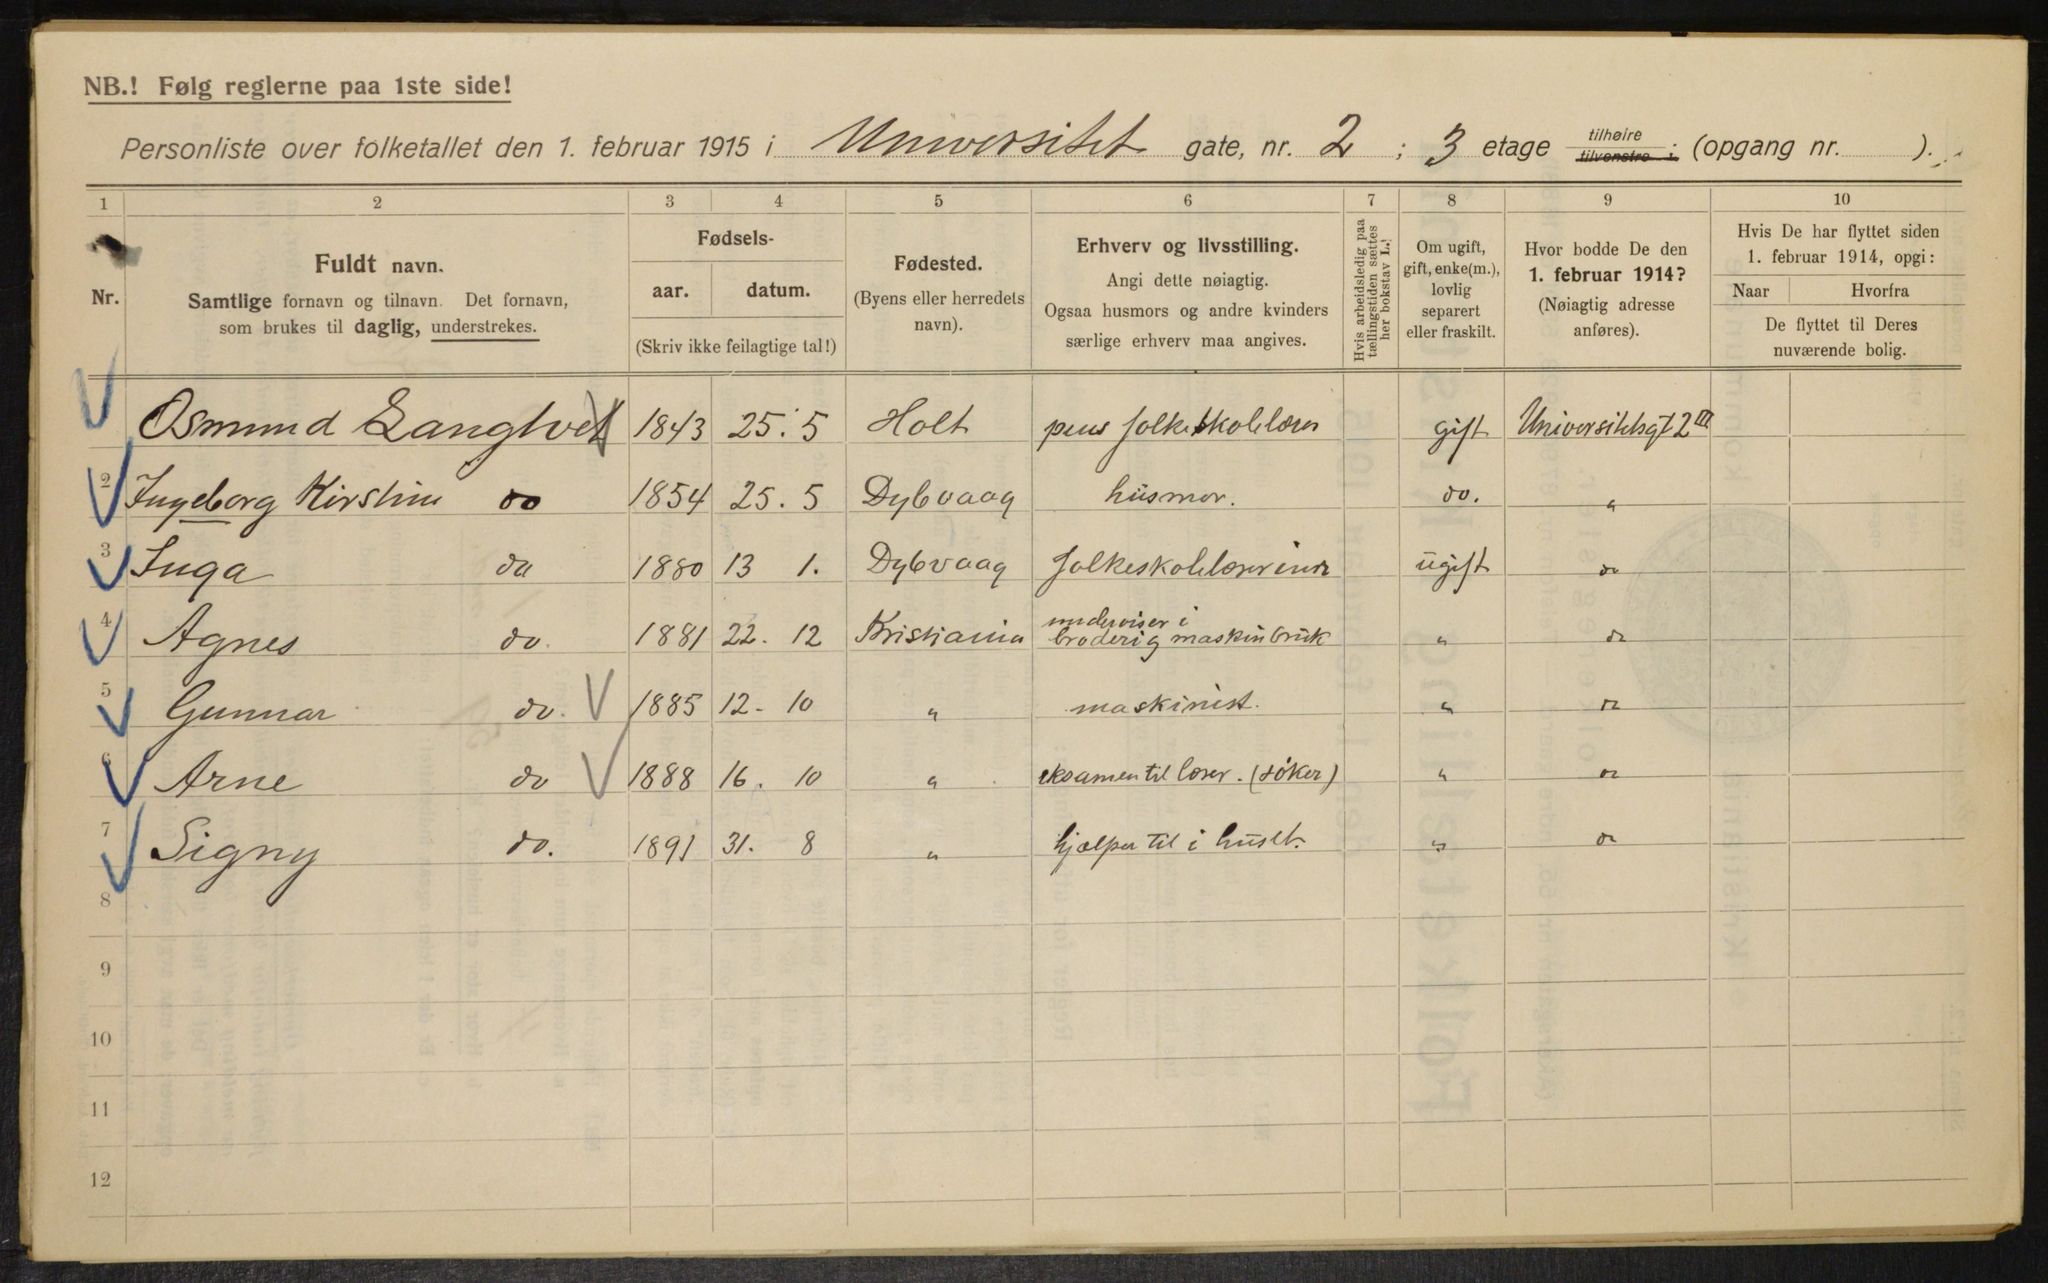 NB.! Følg reglerne paa 1ste side!
Personliste over folketallet den 1. februar 1915 i Universitet gate, nr. 2 ; 3 etage tilhøire tilvenstre ; (opgang nr. ).
1 2 3 4 5 6 7 8 9 10
Nr.
Fuldt navn.
Samtlige fornavn og tilnavn. Det fornavn,
som brukes til daglig, understrekes.
Fødsels-
aar. datum.
(Skriv ikke feilagtige tal!)
Fødested.
(Byens eller herredets
navn).
Erhverv og livsstilling.
Angi dette nøiagtig.
Ogsaa husmors og andre kvinders
særlige erhverv maa angives.
Hvis arbeidsledig paa
tællingstiden sættes
her bokstav L.!
Om ugift,
gift, enke(m.),
lovlig
separert
eller fraskilt.
Hvor bodde De den
1. februar 1914?
(Nøiagtig adresse
anføres).
Hvis De har flyttet siden
1. februar 1914, opgi:
Naar Hvorfra
De flyttet til Deres
nuværende bolig.
Osmund Langtvet 1843 25. 5 Holt pens folkeskolelærer gift Universitetsgt 2 III
2 Ingeborg Kirstine do 1854 25. 5 Dybvaag husmor. do. "
3 Inga do 1880 13 1. Dybvaag folkeskolelærerinde ugift do
4 Agnes do. 1881 22. 12 Kristiania underviser i
broderi g maskinbruk " do
5 Gunnar do. 1885 12. 10 " maskinist. " do
6 Arne do 1888 16. 10 " eksamen til lærer. (søker) " do
7 Signy do. 1891 31. 8 " hjælper til i huset. " do
8
9
10
11
12